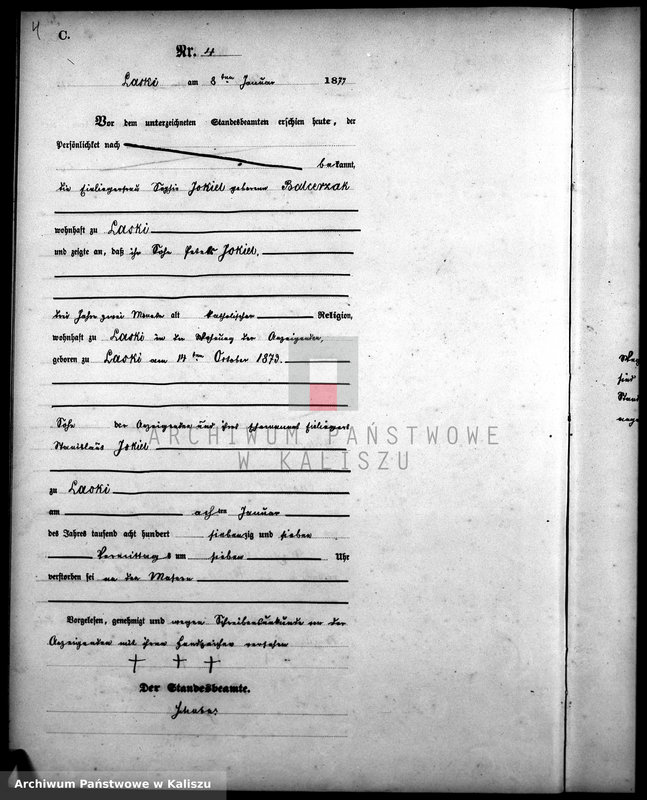 4
C.
Nr. 4
Laski am 8ten Januar 1877
Vor dem unterzeichneten Standesbeamten erschien heute, der
Persönlichkeit nach
bekannt,
die Einliegerfrau Sophie Jokiel geborene Balcerzak
wohnhaft zu Laski
und zeigte an, daß ihr Sohn Peter Jokiel,
drei Jahre zwei Monate alt katholischer Religion,
wohnhaft zu Laski in der Wohnung der Anzeigenden,
geboren zu Laski am 14ten October 1873.
Sohn der Anzeigenden und ihres Ehemannes Einliegers
Stanislaus Jokiel
zu Laski
am achten Januar
des Jahres tausend acht hundert siebenzig und sieben
Vormittags um sieben Uhr
verstorben sei an den Masern
Vorgelesen, genehmigt und wegen Schreibensunkunde von der
Anzeigenden mit ihrem Handzeichen versehen
† † †
Der Standesbeamte.
ARCHIWUM PAŃSTWOWE
W KALISZU
Archiwum Państwowe w Kaliszu